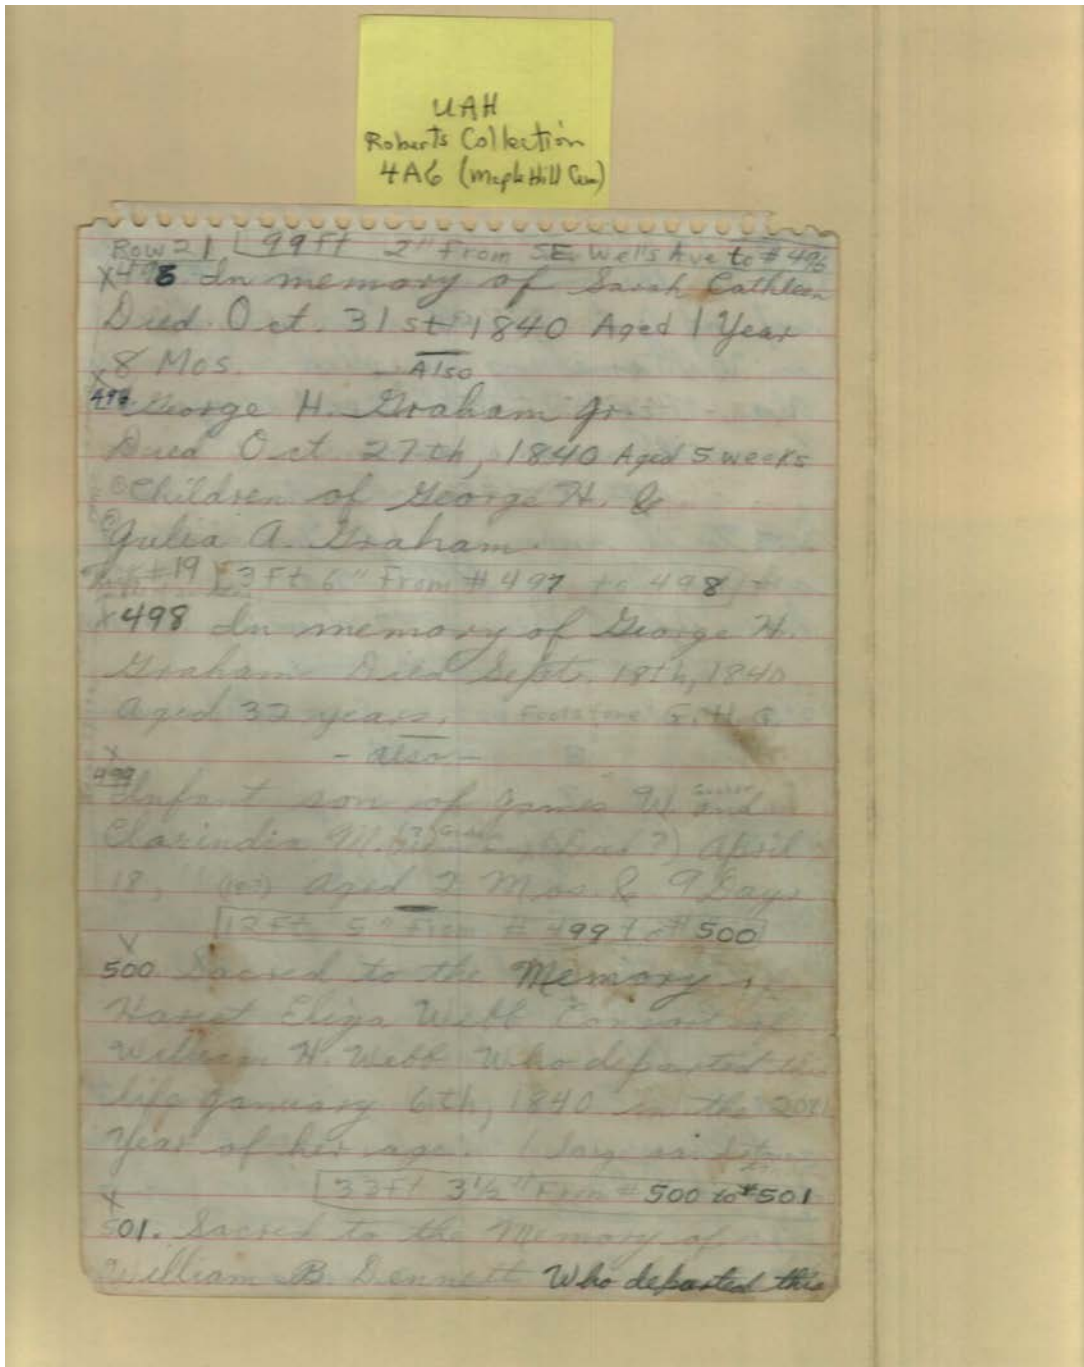 UAH
Roberts Collection
4A6 (Maple Hill Cem)
Row 21 99 Ft 2" From SE. Wells Ave to # 496
X In memory of Sarah Cathleen
Died Oct. 31st 1840 Aged 1 Year
8 Mos. Also
X
George H. Graham Jr.
Died Oct 27th, 1840 Aged 5 weeks
Children of George H. &
Julia A. Graham.
#19 3 Ft 6" From # 497 to 498
X 498 In memory of George H.
Graham Died Sept. 18th, 1840
aged 32 years. Footstone G.H.G.
X - also -
499
Infant son of James W. and
Clarindia M. April
18, aged 2 Mos. & 9 Days
12 Ft 5" From # 499 to # 500
X
500 Sacred to the Memory
Hariet Eliza Webb Consort of
William H. Webb Who departed this
life January 6th, 1840 in the 20th
Year of her age.
33 Ft 3½" From # 500 to #501
X
501. Sacred to the Memory of
William B. Dennett Who departed this